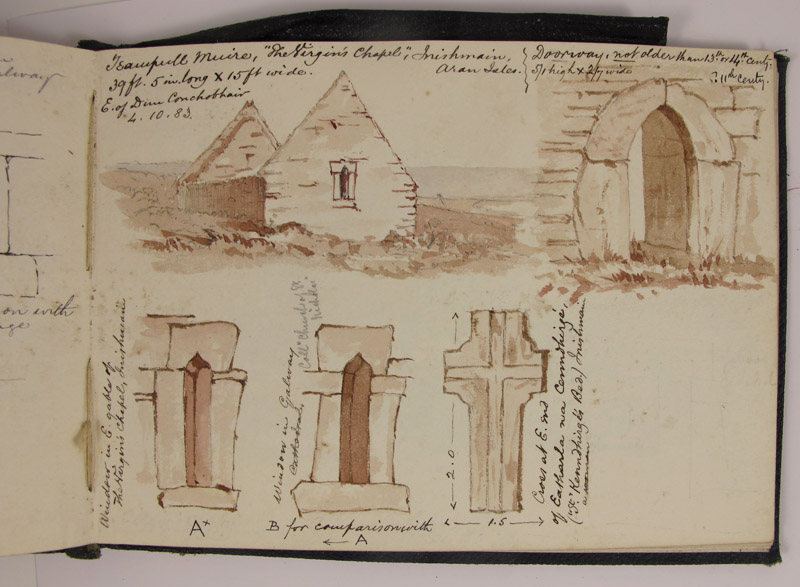 Teampull Muire, "The Virgin's Chapel", Inishmain,
Aran Isles.
39 ft. 5 in. long X 15 ft wide.
E. of Dun Conchobhair
4. 10. 83.
Doorway, not older than 13th or 14th centy.
5/1 high X 2/7 wide
? 11th centy.
Window in E. gable of
The Virgin's Chapel, Inishmean
A+
Window in Galway
Cathedral,
Coll. Church of St.
B for comparison with
← A
2.0
1.5
Cross at E. end
of Eatharla na Cenndhirge,
("St Kenndhirg's Bed) Inishmain
alway
on with
age